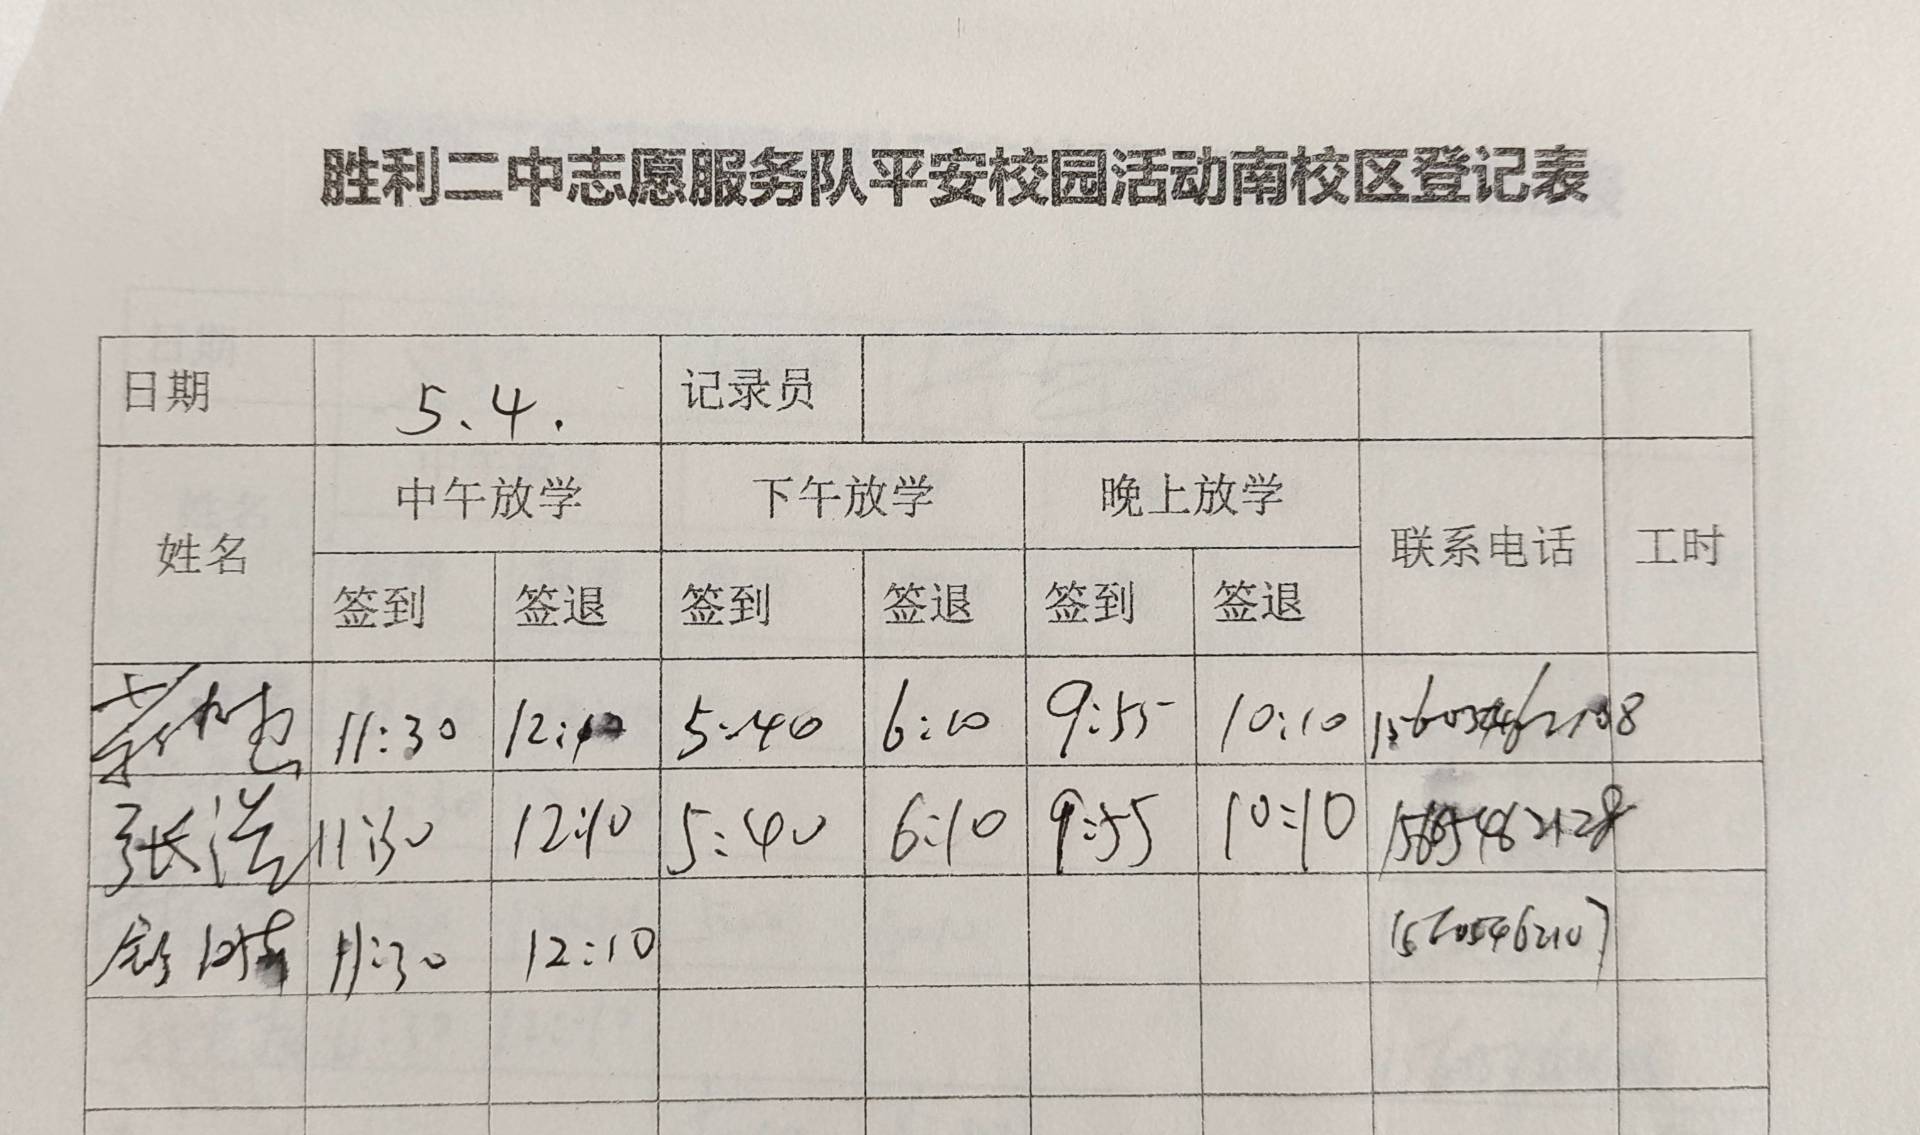 胜利二中志愿服务队平安校园活动南校区登记表
日期 5.4. 记录员
姓名 中午放学 下午放学 晚上放学 联系电话 工时
签到 签退 签到 签退 签到 签退
11:30 12:10 5:40 6:10 9:55 10:10
张浩 11:30 12:10 5:40 6:10 9:55 10:10
11:30 12:10 15605462107